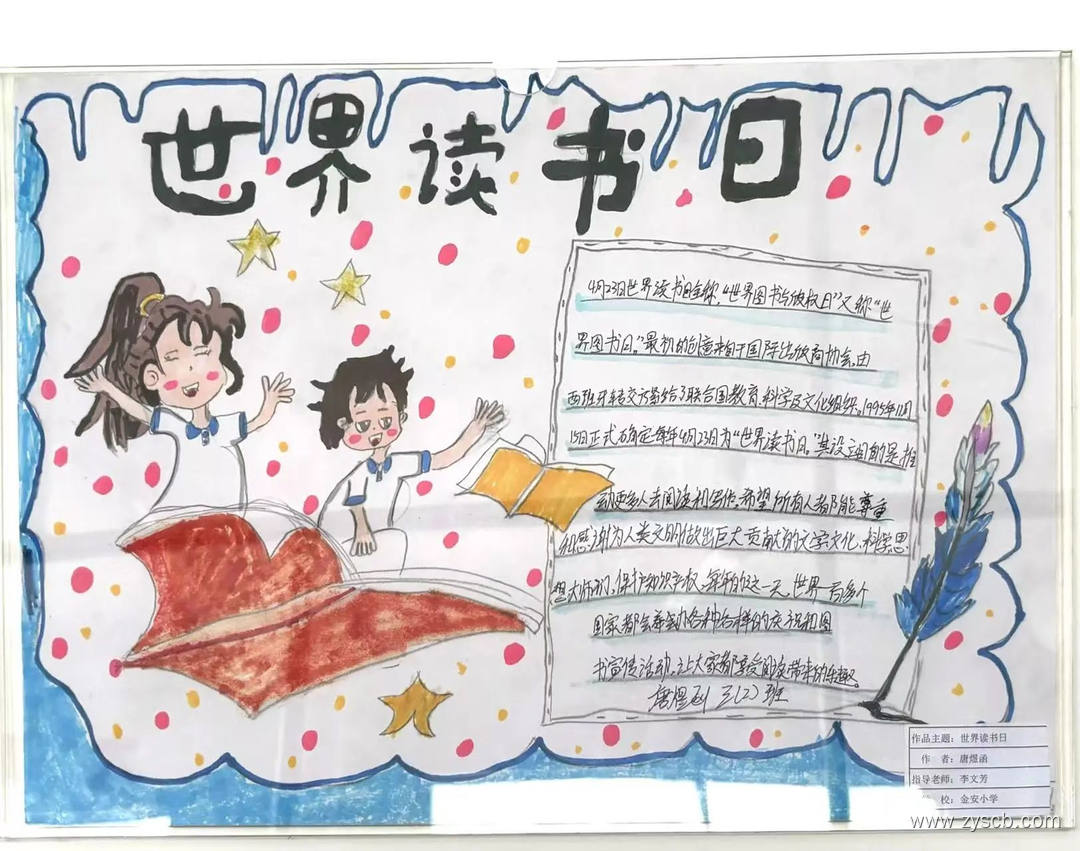 世界读书日
4月23日世界读书日全称"世界图书与版权日"又称"世
界图书日。"最初的创意来自于国际出版商协会。由
西班牙转交方案给了联合国教育、科学及文化组织。1995年11月
15日正式确定每年4月23日为"世界读书日。"其设立目的是推
动更多人去阅读和写作。希望所有人都能尊重
和感谢为人类文明做出巨大贡献的文学文化、科学思
想大师们,保护知识产权。每年的这一天,世界一百多个
国家都会举办各种各样的庆祝和图
书宣传活动,让大家都享受阅读带来的乐趣。
唐煜函 三(2)班
作品主题:世界读书日
作 者:唐煜函
指导老师:李文芳
校:金安小学
www.zyscb.com